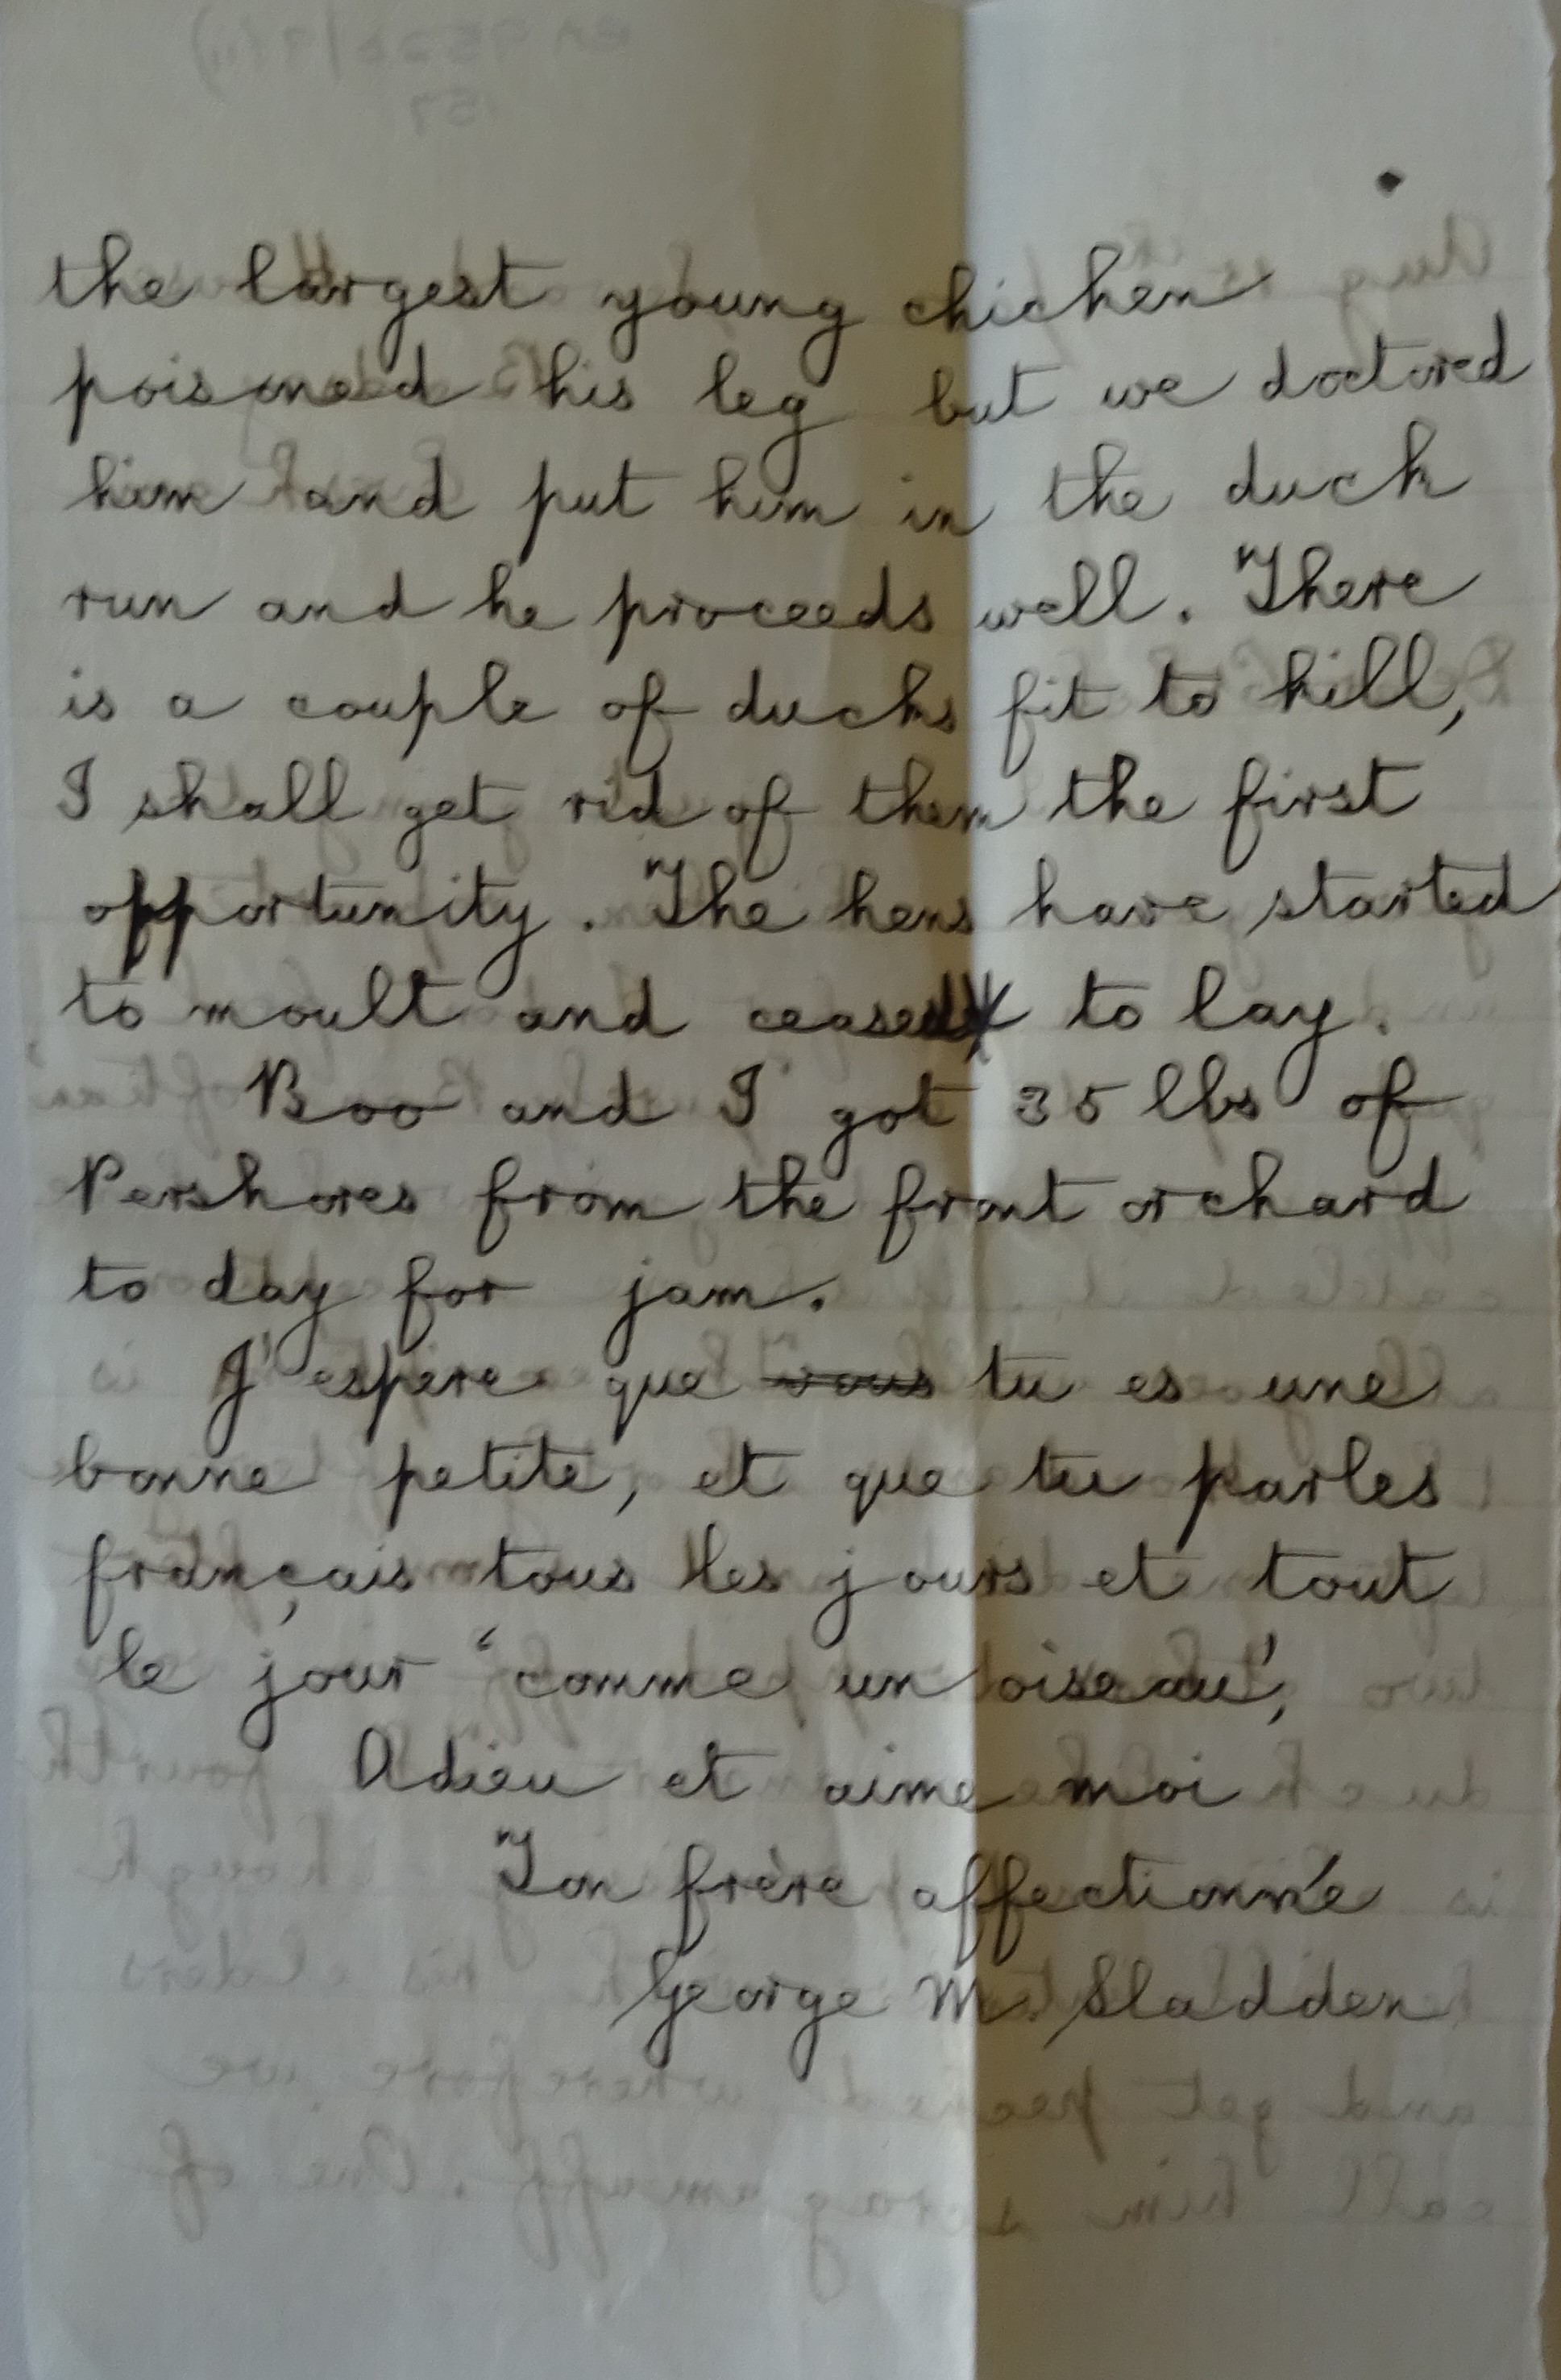 the largest young chicken
poisoned his leg but we doctored
him and put him in the duck
run and he proceeds well. There
is a couple of ducks fit to kill,
I shall get rid of them the first
opportunity. The hens have started
to moult and ceased to lay.
Boo and I got 35 lbs of
Pershores from the front orchard
to day for jam.
J'espere que vous tu es une
bonne petite, et que tu parles
français tous les jours et tout
le jour 'comme un oiseau',
Adieu et aime moi
Ton frère affectionné
George M. Sladden